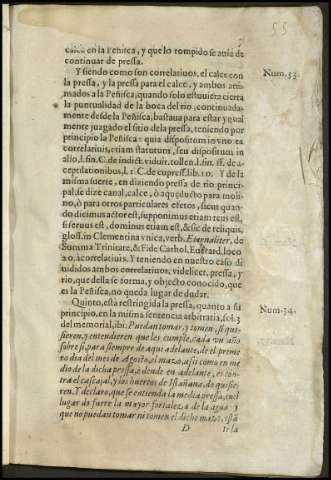 55
7
calce en la Peñisca, y que lo rompido se auia de
continuar de pressa.
Y siendo como son correlatiuos, el calce con
la pressa, y la pressa para el calce, y ambos arri-
mados a la Peñisca, quando solo estuuiera cierta
la puntualidad de la boca del rio, continuada-
mente desde la Peñisca, bastaua para estar ygual
mente juzgado el sitio de la pressa, teniendo por
principio la Peñisca: quia dispositum in vno ex
correlatiuis, etiam statutum, seu dispositum in
alio, l. fin. C. de indict. viduit. tollen. l. fin. ff. de a-
cceptilationibus, l. 1. C. de cupress. lib. 10. Y de la
misma suerte, en diziendo pressa de rio princi-
pal, se dize canal, calce, ò aqueducto para moli-
no, ò para otros particulares efetos, sicut quan-
do dicimus actor est, supponimus etiam reus est,
si seruus est, dominus etiam est, & sic de reliquis,
gloss. in Clementina vnica, verb. Eternaliter, de
Summa Trinitate, & Fide Cathol. Eduerard, loco
20. à correlatiuis. Y teniendo en nuestro caso di
uididos ambos correlatiuos, videlicet, pressa, y
rio, que della se forma, y objecto conocido, que
es la Peñisca, no queda lugar de dudar.
Quinto, està restringida la pressa, quanto a su
principio, en la misma sentencia arbitratia, fol. 3
del memorial, ibi: Puedan tomar, y tomen, si qui-
sieren, y entendieren que les cumple, cada vn año
sobre si, para siempre de aqui adelante, de el preme
ro dia del mes de Agosto, el mazo, assi como en me
dio de la dicha pressa, ò dende en adelante, es con-
tra el cascajal, y los huertos de Isiañana, do quisie-
ren. Y declaro, que se entienda la media pressa, en el
lugar do fuere la mayor fortaleza de la agua, y
que no puedan tomar ni tomen el dicho mazo,
D
Num. 33.
Num. 34.